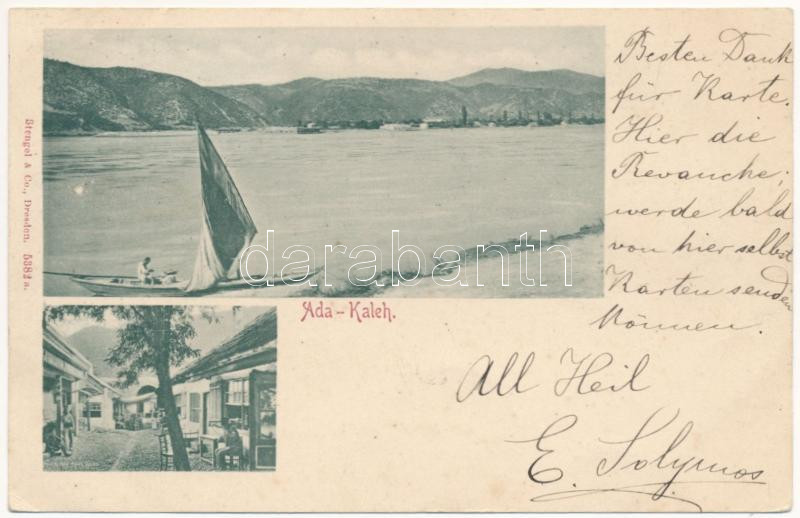 Besten Dank
für Karte.
Hier die
Revanche;
werde bald
von hier selbst
Karten senden
können.
All Heil
E. Solymos
Ada-Kaleh.
Stengel & Co., Dresden. 5382a.
darabanth